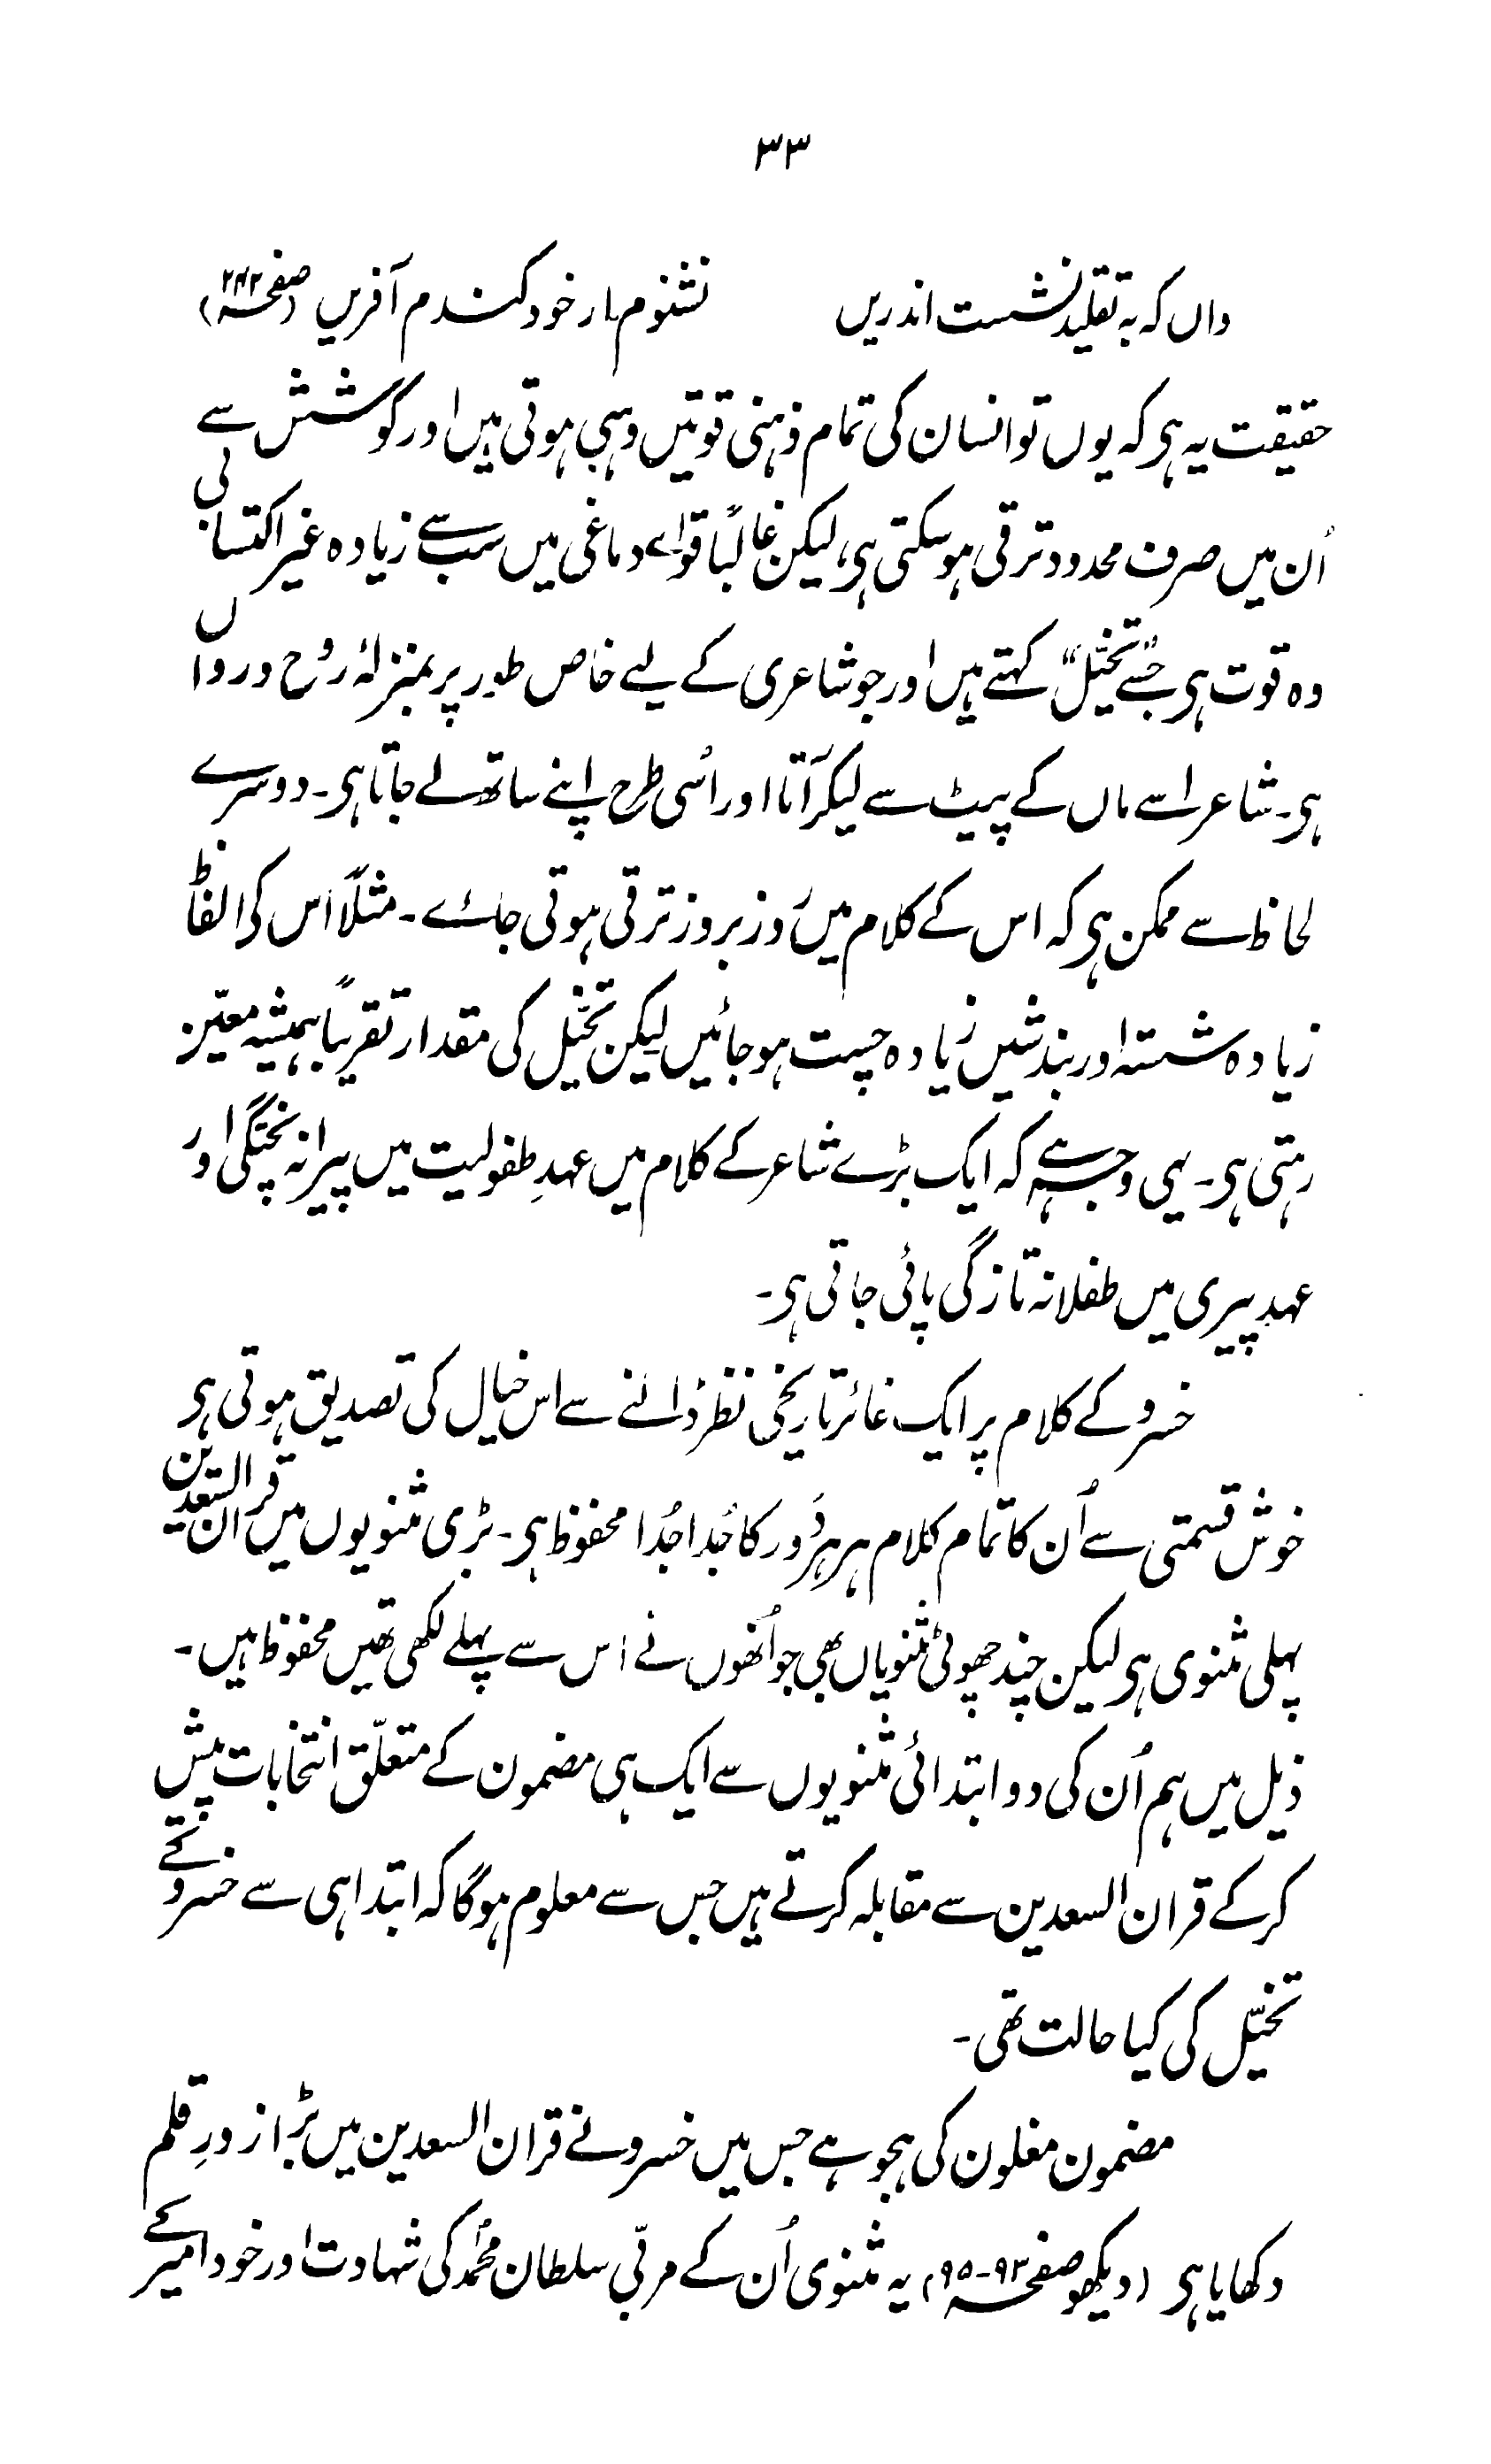 ۳۳
واں کہ بہ تقلید نشست اندریں نشنوم ار خود کندم آفریں (صفحہ ۲۴۲)
حقیقت یہ ہی کہ یوں تو انسان کی تمام ذہنی قوتیں وہبی ہوتی ہیں اور کوشش سے
اُن میں صرف محدود ترقی ہو سکتی ہی، لیکن غالباً قواے دماغی میں سب سے زیادہ غیر اکتسابی
وہ قوت ہی جسے ”تخیّل“ کہتے ہیں اور جو شاعری کے لیے خاص طور پر بمنزلۂ رُوح و رواں
ہی۔ شاعر اسے ماں کے پیٹ سے لیکر آتا اور اُسی طرح اپنے ساتھ لے جاتا ہی۔ دوسرے
لحاظ سے ممکن ہی کہ اس کے کلام میں روز بروز ترقی ہوتی جائے۔ مثلاً اس کی الفاظ
زیادہ شستہ اور بندشیں زیادہ چست ہو جائیں لیکن تخیّل کی مقدار تقریباً ہمیشہ معیّن
رہتی ہی۔ یہی وجہ ہے کہ ایک بڑے شاعر کے کلام میں عہدِ طفولیت میں پیرانہ پختگی اور
عہد پیری میں طفلانہ تازگی پائی جاتی ہی۔
خسرو کے کلام پر ایک غائر تاریخی نظر ڈالنے سے اس خیال کی تصدیق ہوتی ہی
خوش قسمتی سے اُن کا تمام کلام ہر ہر دَور کا جُدا جُدا محفوظ ہی۔ بڑی مثنویوں میں قران السّعدین
پہلی مثنوی ہی لیکن چند چھوٹی مثنویاں بھی جو اُنھوں نے اس سے پہلے لکھی تھیں محفوظ ہیں۔
ذیل میں ہم اُن کی دو ابتدائی مثنویوں سے ایک ہی مضمون کے متعلّق انتخابات پیش
کر کے قران السعدین سے مقابلہ کرتے ہیں جس سے معلوم ہو گا کہ ابتدا ہی سے خسرو کے
تخیّل کی کیا حالت تھی۔
مضمون مغلون کی ہجو ہے جس میں خسرو نے قران السعدین میں بڑا زورِ قلم
دکھایا ہی (دیکھو صفحہ ۹۳-۹۵) یہ مثنوی اُن کے مربّی سلطان محُمد کی شہادت اور خود امیر کے